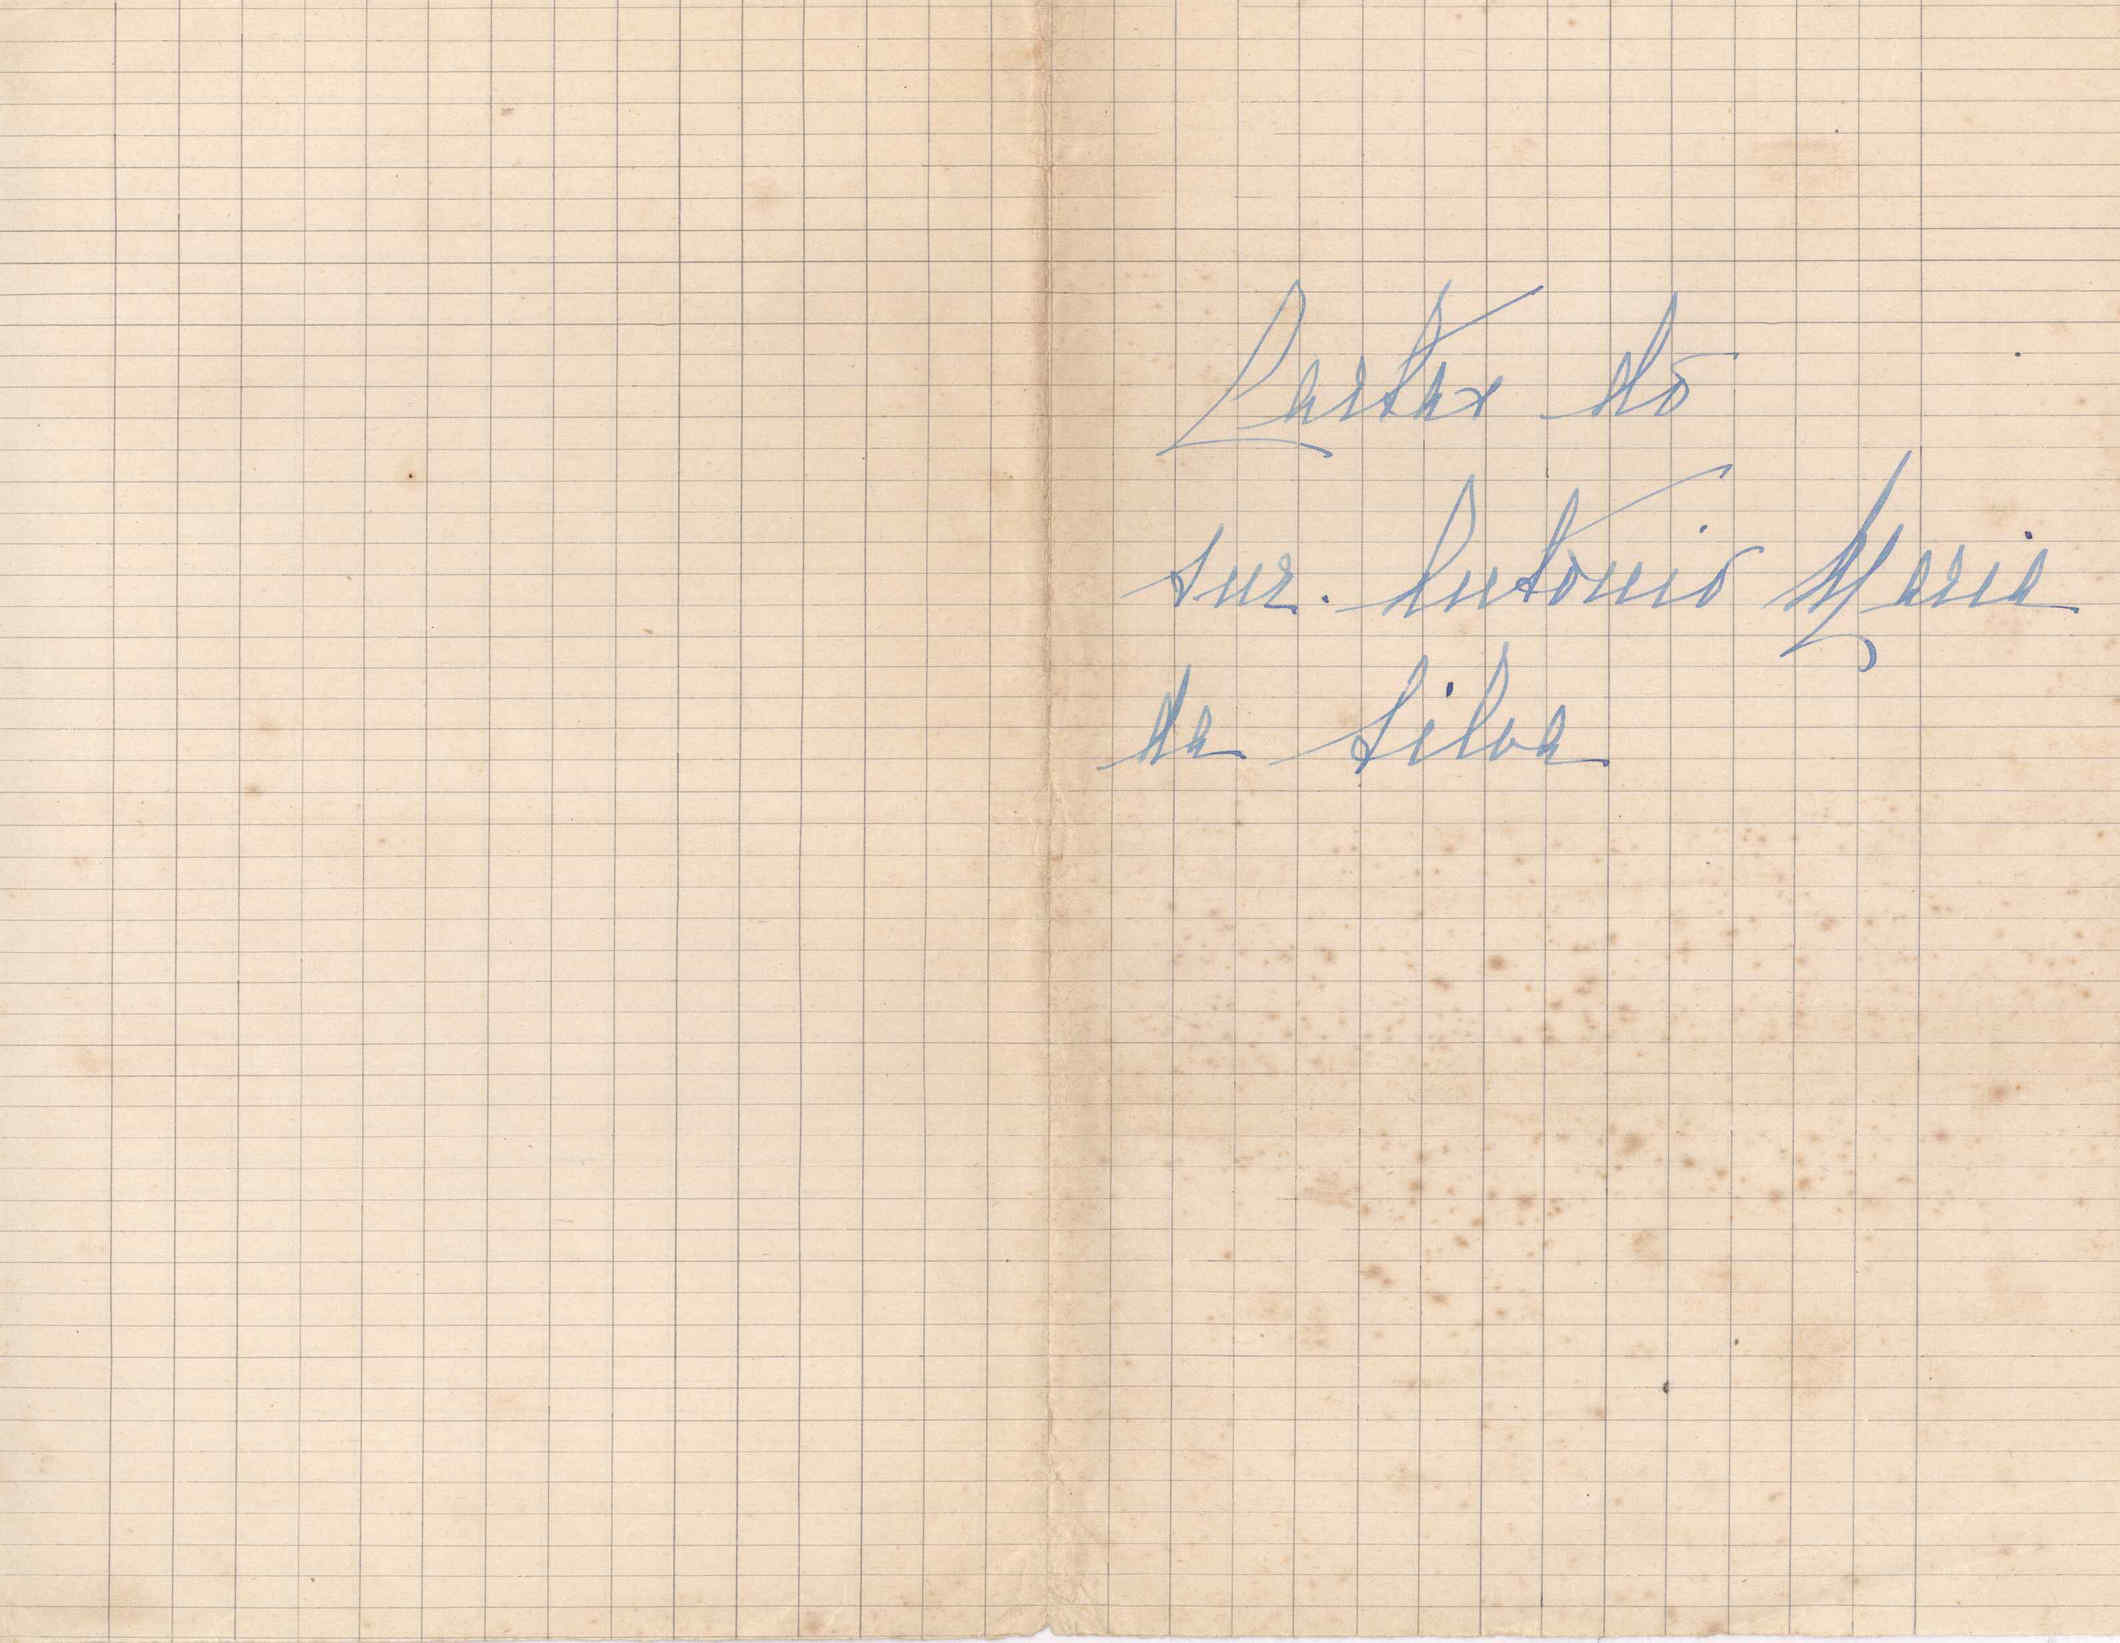 Cartas do
snr. Antonio Maria
da Silva